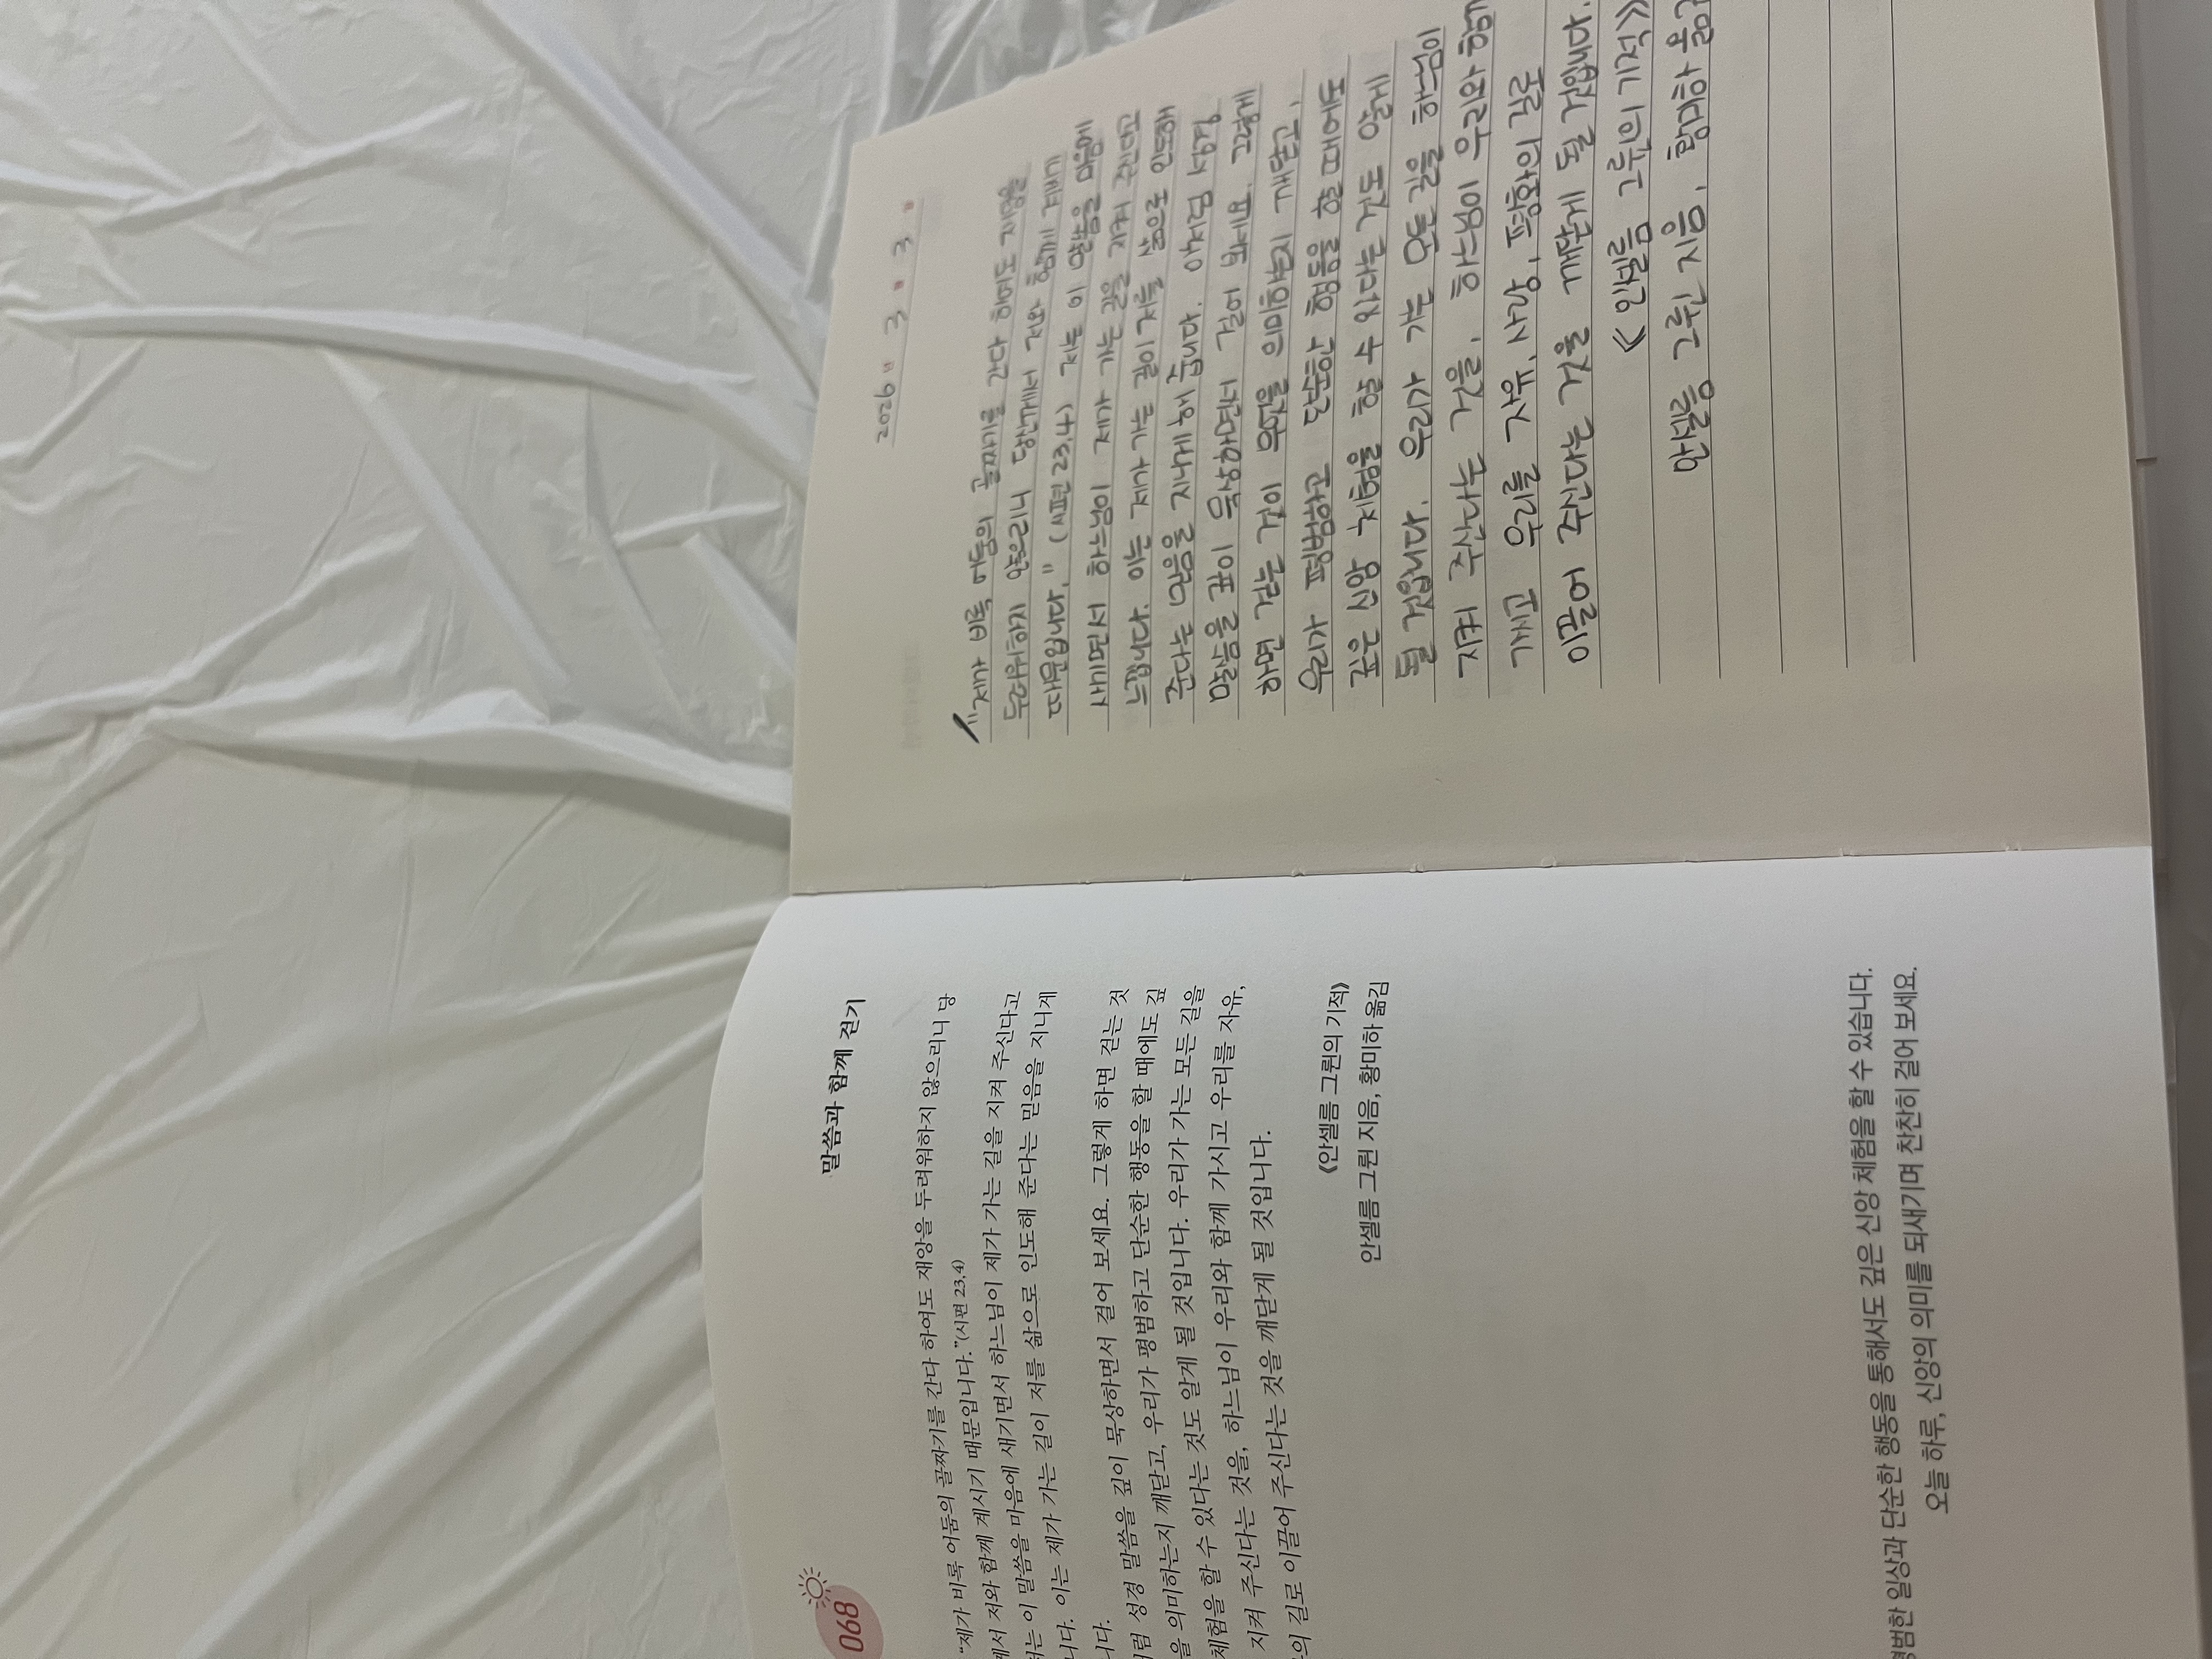 068
말씀과 함께 걷기
“제가 비록 어둠의 골짜기를 간다 하여도 재앙을 두려워하지 않으리니 당
께서 저와 함께 계시기 때문입니다.”(시편 23,4)
는 이 말씀을 마음에 새기면서 하느님이 제가 가는 길을 지켜 주신다고
니다. 이는 제가 가는 길이 저를 삶으로 인도해 준다는 믿음을 지니게
니다.
럼 성경 말씀을 깊이 묵상하면서 걸어 보세요. 그렇게 하면 걷는 것
을 의미하는지 깨닫고, 우리가 평범하고 단순한 행동을 할 때에도 깊
체험을 할 수 있다는 것도 알게 될 것입니다. 우리가 가는 모든 길을
지켜 주신다는 것을, 하느님이 우리와 함께 가시고 우리를 자유,
의 길로 이끌어 주신다는 것을 깨닫게 될 것입니다.
《안셀름 그륀의 기적》
안셀름 그륀 지음, 황미하 옮김
평범한 일상과 단순한 행동을 통해서도 깊은 신앙 체험을 할 수 있습니다.
오늘 하루, 신앙의 의미를 되새기며 찬찬히 걸어 보세요.
2026 3 3
"제가 비록 어둠의 골짜기를 간다 하여도 재앙을
두려워하지 않으리니 당신께서 저와 함께 계시기
때문입니다." (시편 23,4) 저는 이 말씀을 마음에
새기면서 하느님이 제가 가는 길을 지켜 주신다고
느낍니다. 이는 제가 가는 길이 저를 삶으로 인도해
준다는 믿음을 지니게 해 줍니다. 이처럼 성경
말씀을 깊이 묵상하면서 걸어 보세요. 그렇게
하면 걷는 것이 무엇을 의미하는지 깨닫고,
우리가 평범하고 단순한 행동을 할 때에도
깊은 신앙 체험을 할 수 있다는 것도 알게
될 것입니다. 우리가 가는 모든 길을 하느님이
지켜 주신다는 것을, 하느님이 우리와 함께
가시고 우리를 자유, 사랑, 평화의 길로
이끌어 주신다는 것을 깨닫게 될 것입니다.
《안셀름 그륀의 기적》
안셀름 그륀 지음, 황미하 옮김